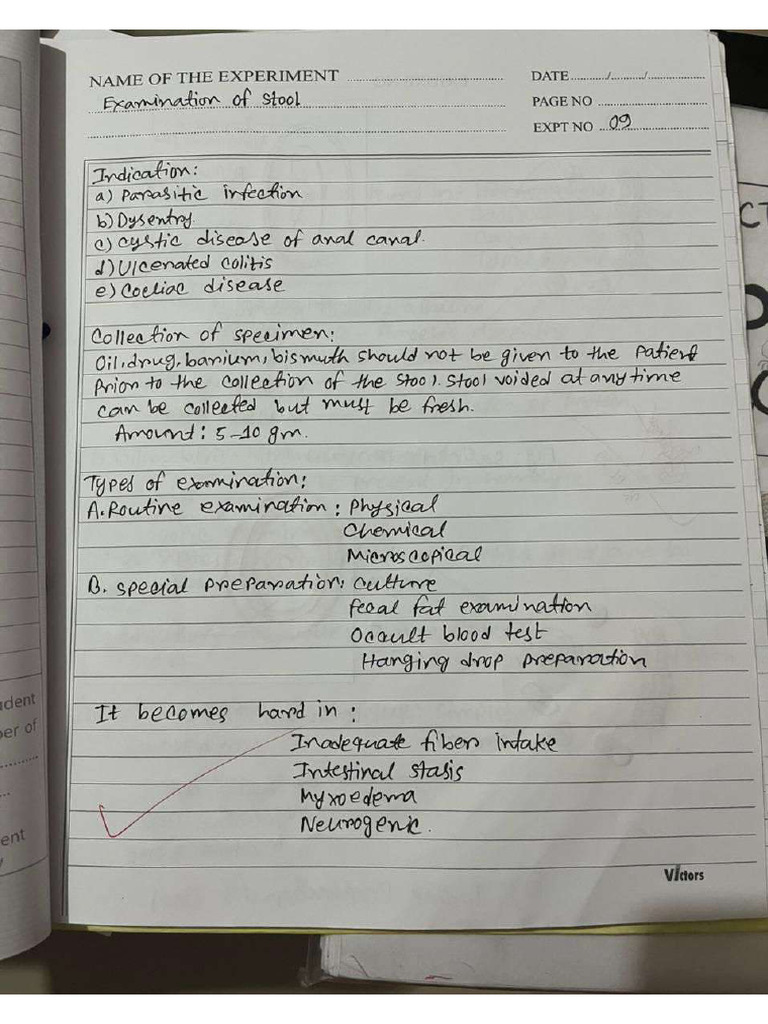 NAME OF THE EXPERIMENT
DATE / /
Examination of stool
PAGE NO
EXPT NO 09
Indication:
a) Parasitic infection
b) Dysentry
c) Cystic disease of anal canal.
d) Ulcerated colitis
e) Coeliac disease
Collection of specimen:
Oil, drug, barium, bismuth should not be given to the patient
Prior to the collection of the stool. Stool voided at any time
can be collected but must be fresh.
Amount: 5-10 gm.
Types of examination:
A. Routine examination: Physical
Chemical
Microscopical
B. Special preparation: Culture
Fecal fat examination
Occult blood test
Hanging drop preparation
It becomes hard in:
Inadequate fibers intake
Intestinal stasis
Myxoedema
Neurogenic.
Victors
udent
per of
ent
CT